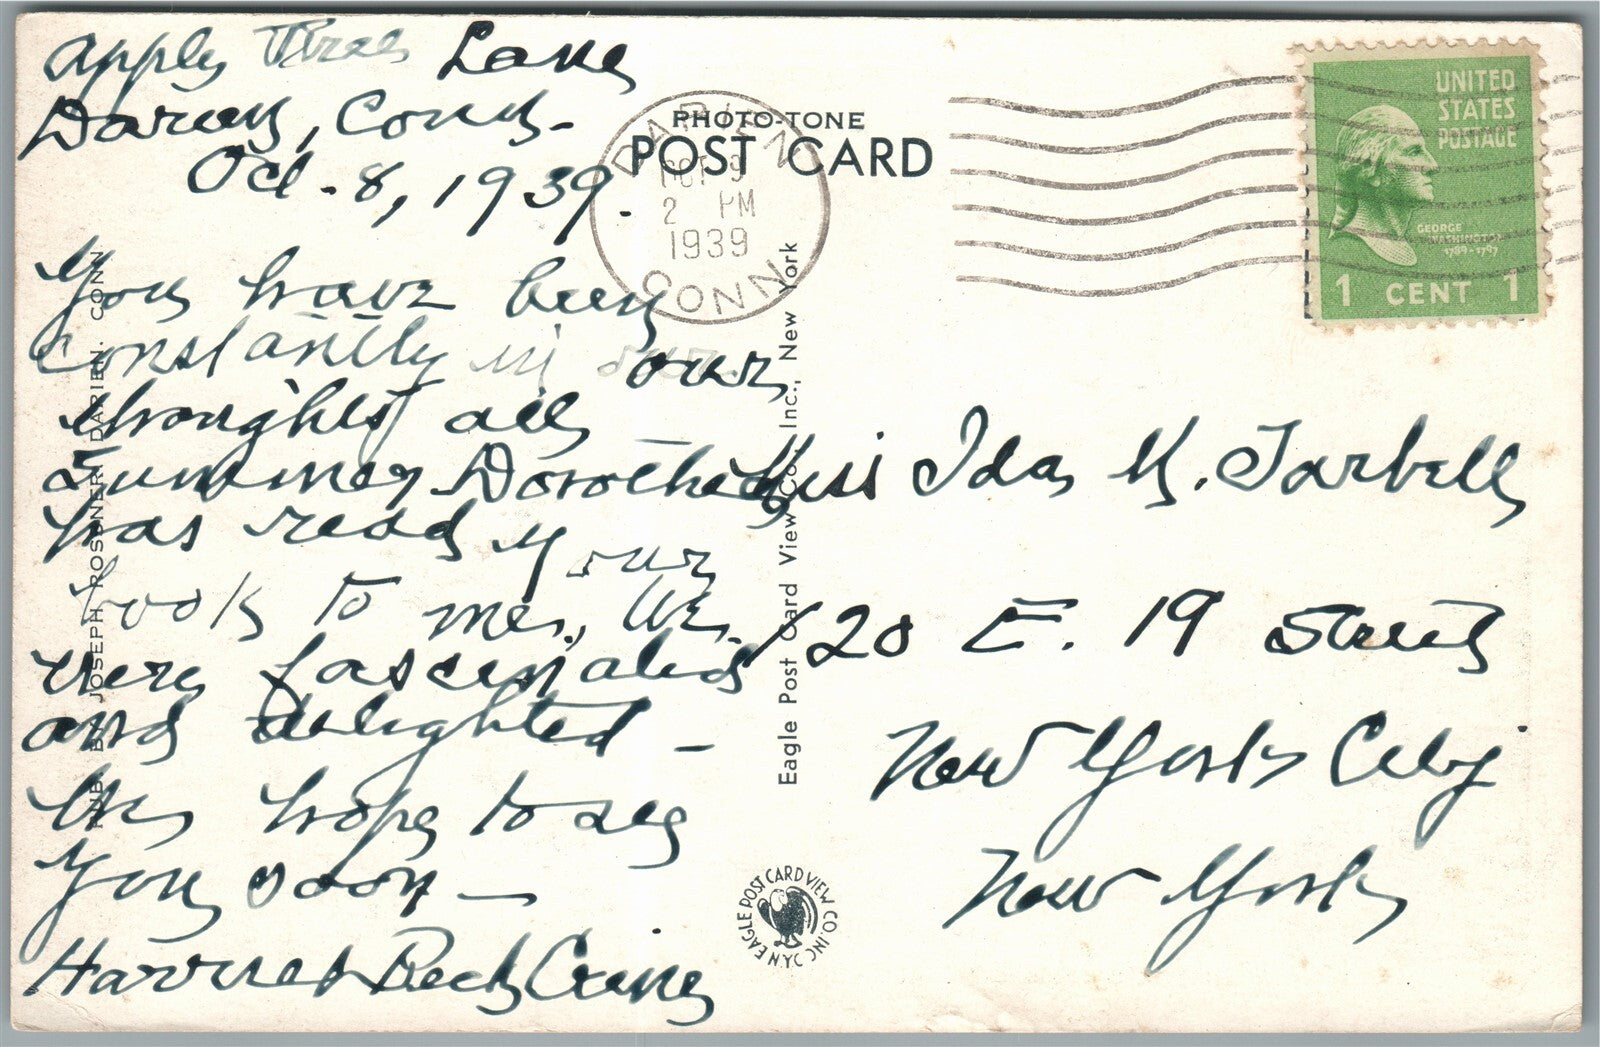 Apple Tree Lane
Darien, Conn.
Oct. 8, 1939.
You have been
constantly in our
thoughts all
summer Dorothea
has read your
book to me, We
were fascinated
and delighted –
We hope to see
you soon –
Harriet Beck Crane
PHOTO-TONE
POST CARD
DARIEN
OCT 9
2 PM
1939
CONN.
UNITED
STATES
POSTAGE
GEORGE
WASHINGTON
1789-1797
1 CENT 1
Miss Ida M. Tarbell
120 E. 19 Street
New York City
New York
PUB. BY JOSEPH ROSNER, DARIEN, CONN.
Eagle Post Card View Co., Inc., New York
EAGLE POST CARD VIEW CO. INC. N.Y.C.